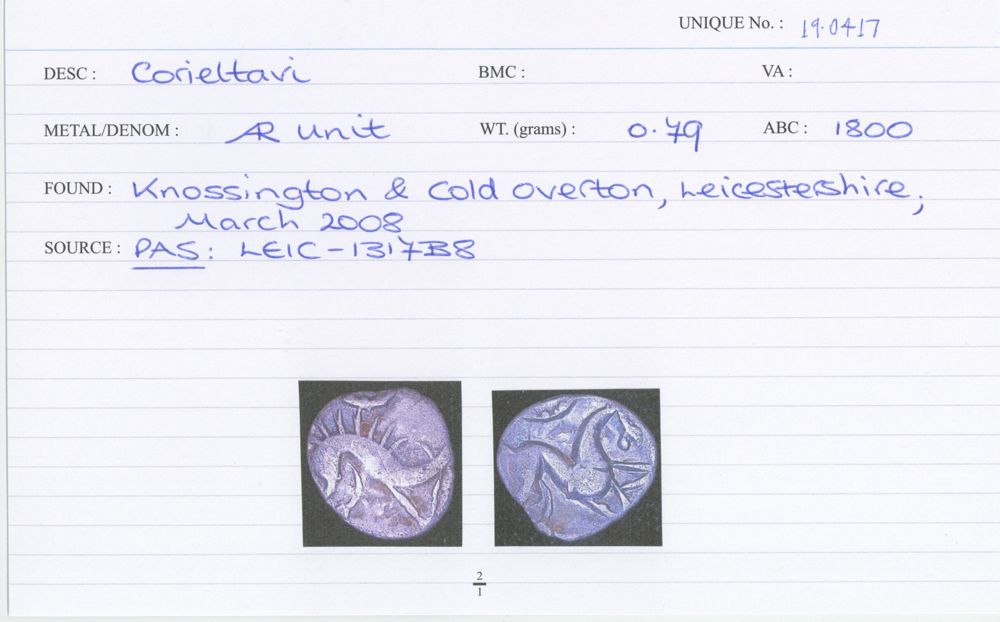 UNIQUE No. : 19.0417
DESC : Corieltavi BMC : VA :
METAL/DENOM : AR Unit WT. (grams) : 0.79 ABC : 1800
FOUND : Knossington & Cold Overton, Leicestershire;
March 2008
SOURCE : PAS: LEIC-1317B8
2
1